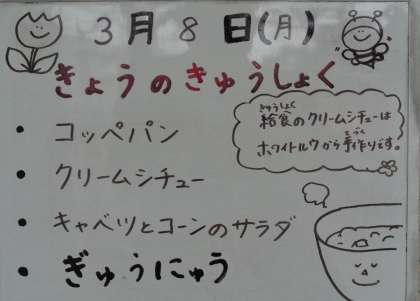 3月8日(月)
きょうのきゅうしょく
・コッペパン
・クリームシチュー
・キャベツとコーンのサラダ
・ぎゅうにゅう
きゅうしょく
給食のクリームシチューは
てづく
ホワイトルウから手作りです。